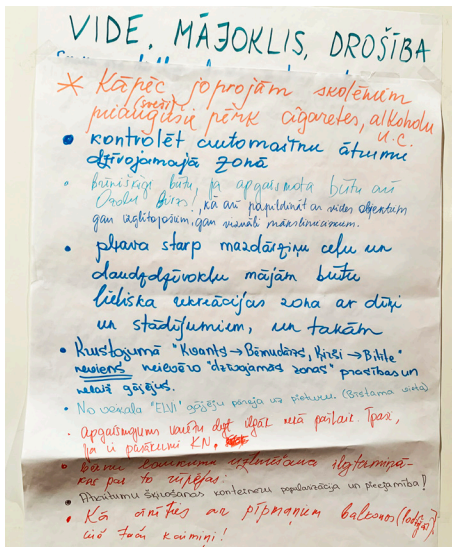 VIDE, MĀJOKLIS, DROŠĪBA
* Kāpēc joprojām skolēniem
(sveši)
pieaugušie pērk cigaretes, alkoholu
u.c.
• kontrolēt automašīnu ātrumu
dzīvojamajā zonā
• Brīnišķīgi būtu, ja apgaismota būtu arī
Ozolu Birzs!, kā arī papildināt ar vides objektiem
gan izglītojošiem, gan vizuāli mākslinieciskiem.
• pļava starp mazdārziņu ceļu un
daudzdzīvokļu mājām būtu
lieliska rekreācijas zona ar dīķi
un stādījumiem, un takām
• Krustojumā "Kvants → Bēmudārzs, Ķirši → Bitīte"
neviens neievēro "dzīvojamās zonas" prasības un
nelaiž gājējus.
• No veikala "ELVI" gājēju pāreja uz pieturu. (Bīstama vieta)
• Apgaismojums varētu degt ilgāk nekā pašlaik. Īpaši,
ja ir pasākumi KN.
• Bērnu laukumu uzturēšana ilgtermiņā-
kas par to rūpējas.
• Atkritumu šķirošanas konteineru popularizācija un pieejamība!
• Kā cīnīties ar pīpmaņiem balkonos (lodžijās),
kaimiņi!